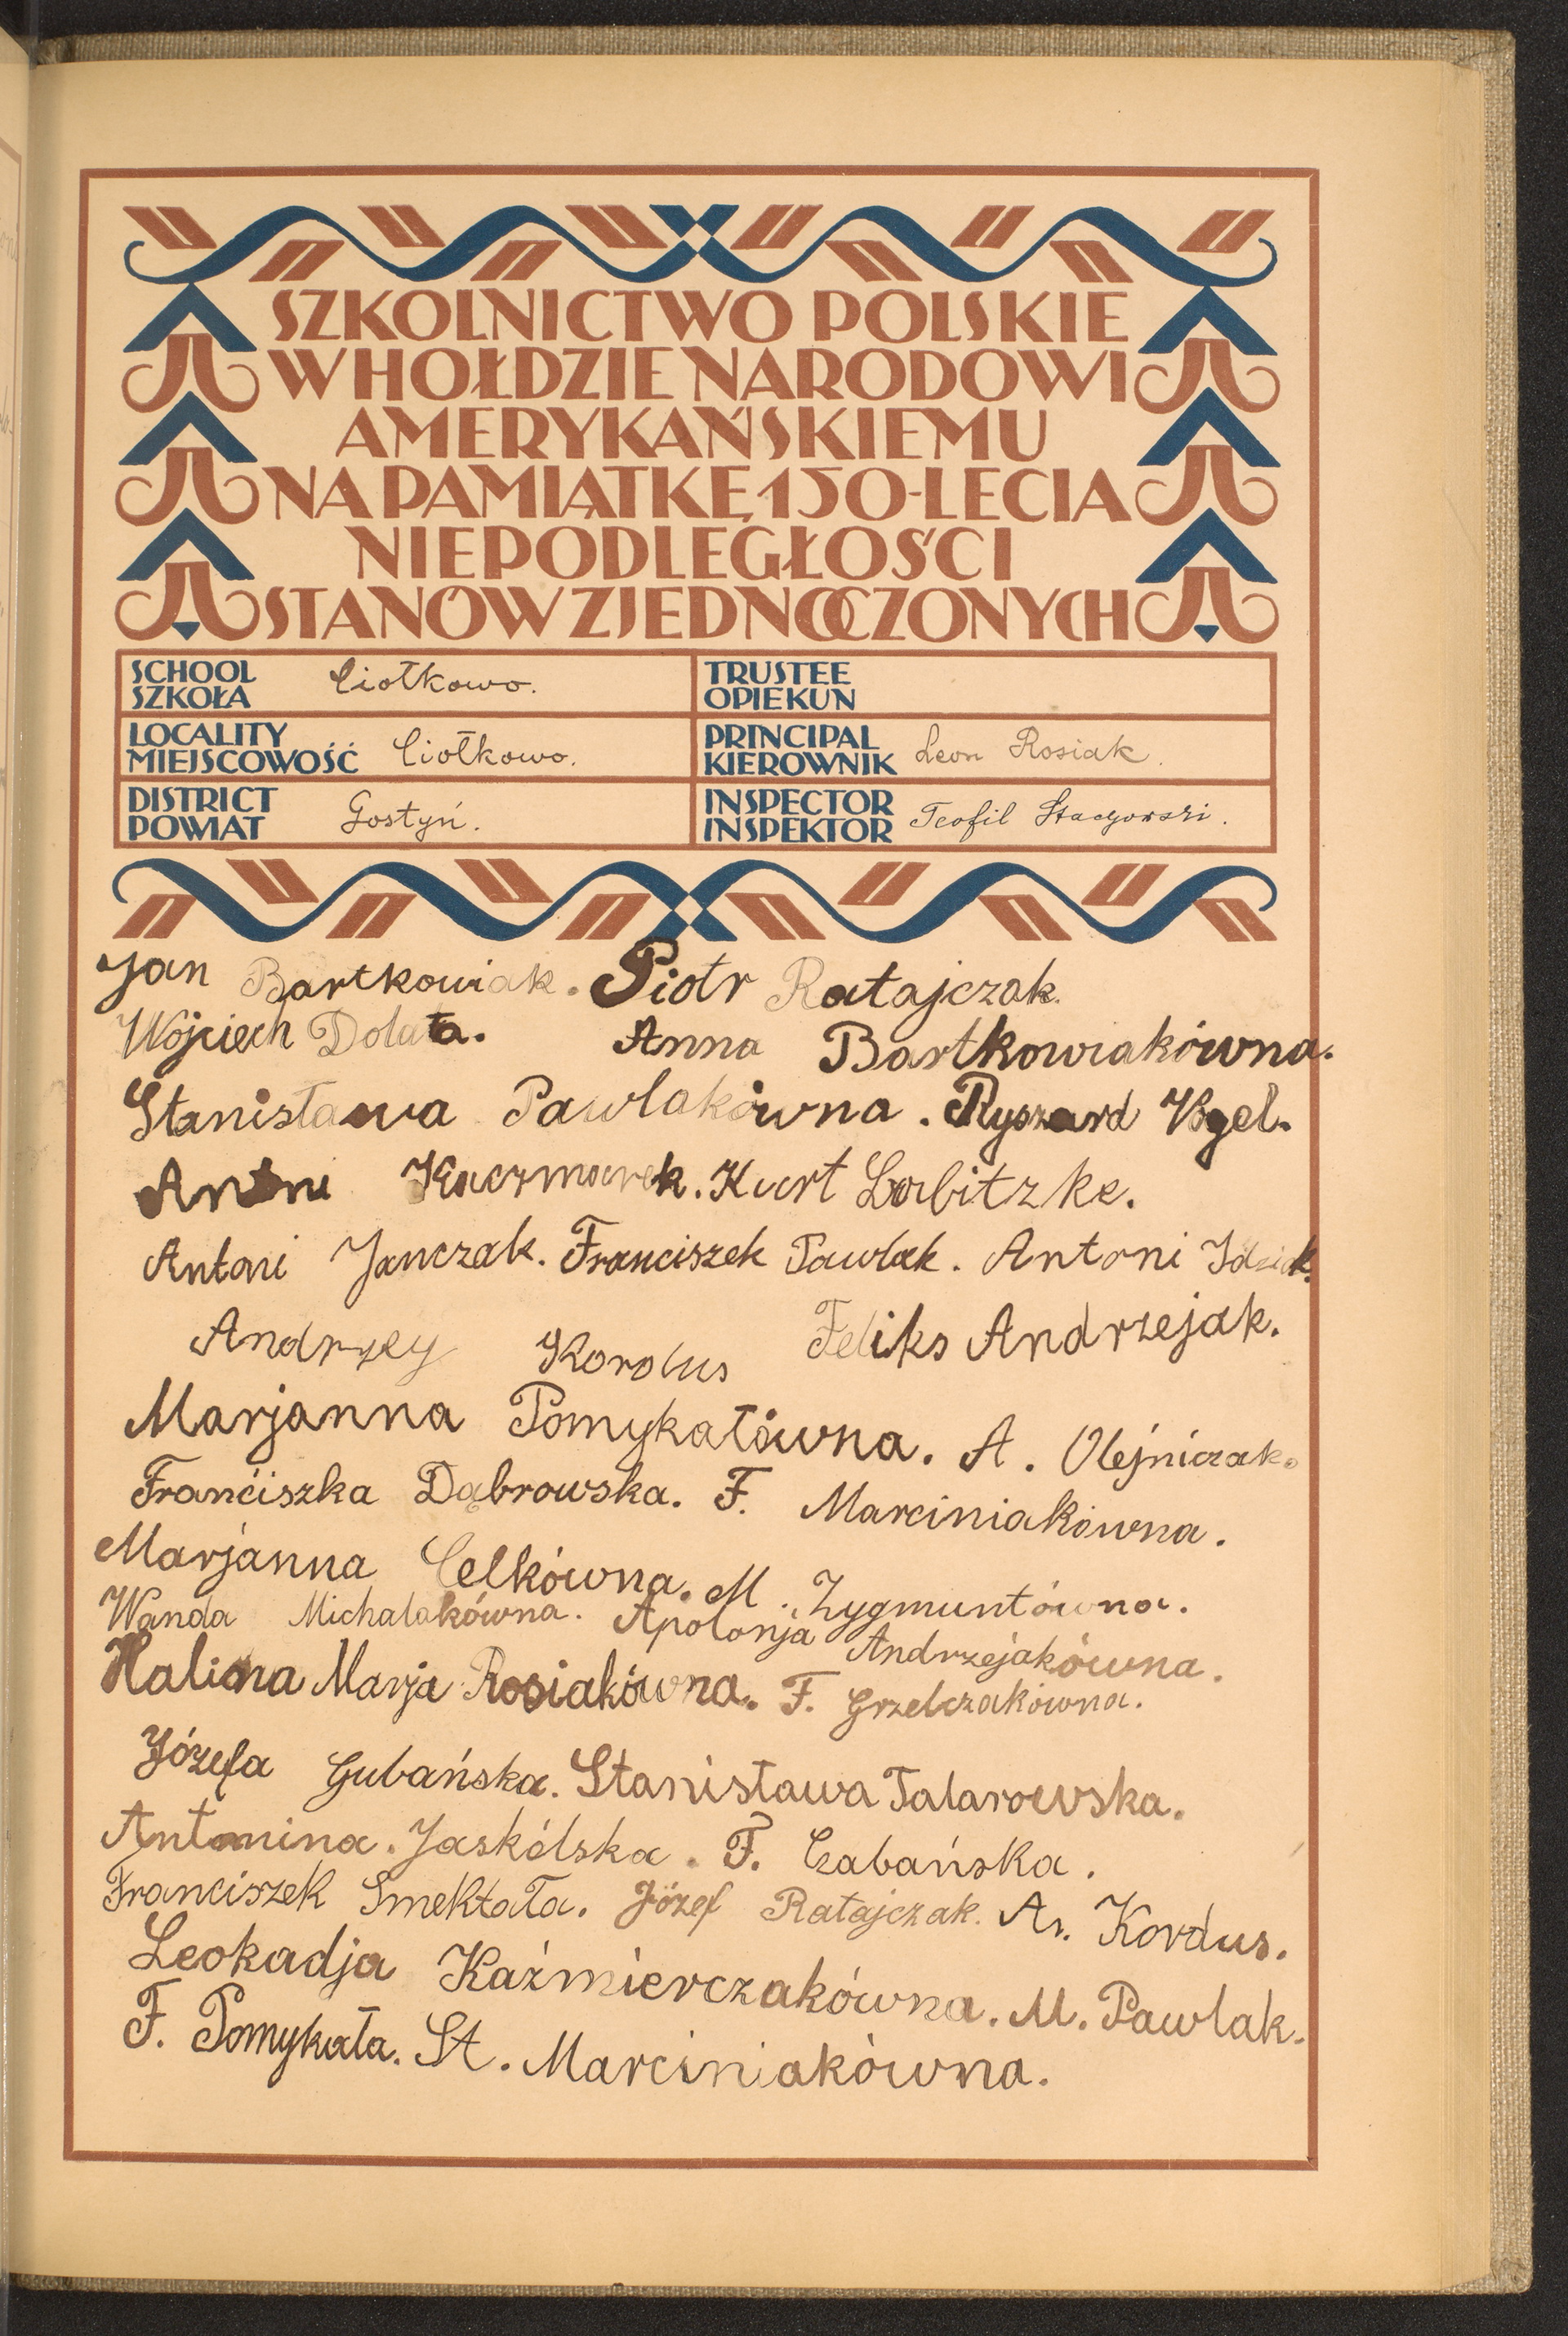 SZKOLNICTWO POLSKIE
W HOŁDZIE NARODOWI
AMERYKAŃSKIEMU
NA PAMIĄTKĘ 150-LECIA
NIEPODLEGŁOŚCI
STANÓW ZJEDNOCZONYCH
SCHOOL
SZKOŁA Ciołkowo.
TRUSTEE
OPIEKUN
LOCALITY
MIEJSCOWOŚĆ Ciołkowo.
PRINCIPAL
KIEROWNIK Leon Rosiak.
DISTRICT
POWIAT Gostyń.
INSPECTOR
INSPEKTOR Teofil
Jan Bartkowiak. Piotr Ratajczak.
Wojciech Dolata. Anna Bartkowiakówna.
Stanisława Pawlakówna. Ryszard Vogel.
Antoni Kaczmarek. Kurt Labitzke.
Antoni Janczak. Franciszek Pawlak. Antoni Idziak.
Andrzey Kordus Feliks Andrzejak.
Marjanna Pomykałówna. A. Olejniczak.
Franciszka Dąbrowska. F. Marciniakówna.
Marjanna Celkówna. M. Zygmuntówna.
Wanda Michalakówna. Apolonja Andrzejakówna.
Halina Marja Rosiakówna. F. Grzelczakówna.
Józefa Gubańska. Stanisława Talarowska.
Antonina. Jaskólska. F. Czabańska.
Franciszek Smektała. Józef Ratajczak. An. Kordus.
Leokadja Kaźmierczakówna. M. Pawlak.
F. Pomykała. St. Marciniakówna.